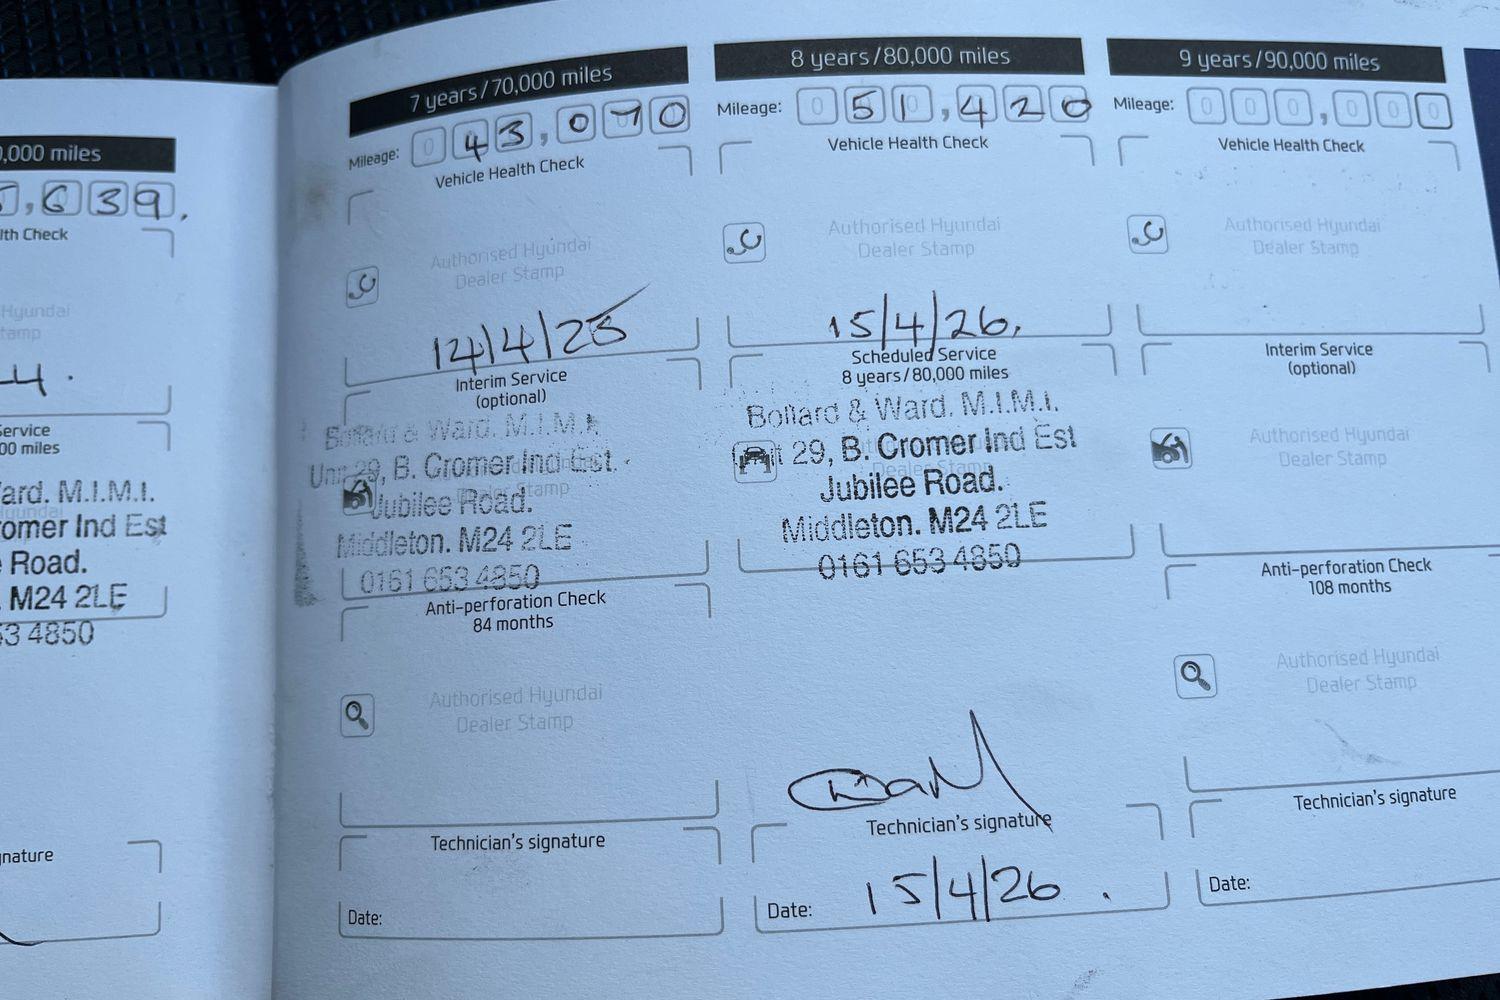 ,000 miles
,639.
lth Check
Hyundai
tamp
4.
Service
00 miles
ard. M.I.M.I.
Hyundai
omer Ind Est
Road.
M24 2LE
53 4850
nature
7 years/70,000 miles
Mileage: 043,070
Vehicle Health Check
Authorised Hyundai
Dealer Stamp
14/4/25
Interim Service
(optional)
Bollard & Ward. M.I.M.I.
Unit 29, B. Cromer Ind Est.
Jubilee Road.
Stamp
Middleton. M24 2LE
0161 653 4850
Anti-perforation Check
84 months
Authorised Hyundai
Dealer Stamp
Technician's signature
Date:
8 years/80,000 miles
Mileage: 051,420
Vehicle Health Check
Authorised Hyundai
Dealer Stamp
15/4/26.
Scheduled Service
8 years/80,000 miles
Bollard & Ward. M.I.M.I.
29, B. Cromer Ind Est
Dealer Stamp
Jubilee Road.
Middleton. M24 2LE
0161 653 4850
Technician's signature
Date: 15/4/26.
9 years/90,000 miles
Mileage: 000,000
Vehicle Health Check
Authorised Hyundai
Dealer Stamp
Interim Service
(optional)
Authorised Hyundai
Dealer Stamp
Anti-perforation Check
108 months
Authorised Hyundai
Dealer Stamp
Technician's signature
Date: